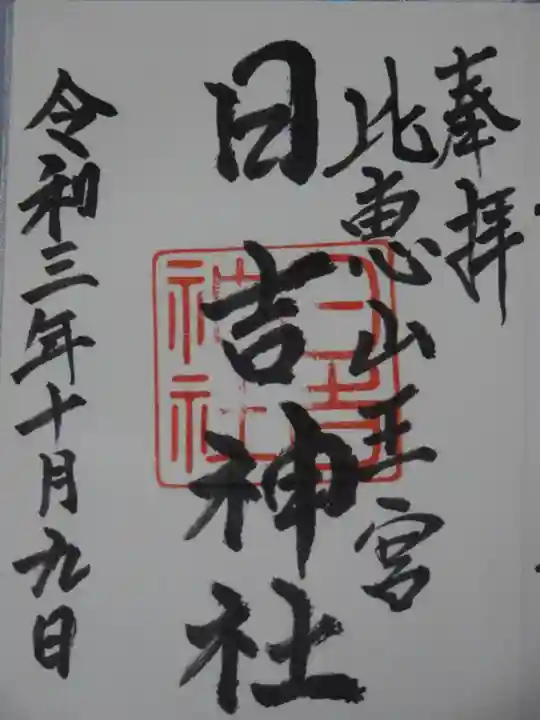 奉拝
比恵山王宮
日吉神社
日吉
神社
令和三年十月九日